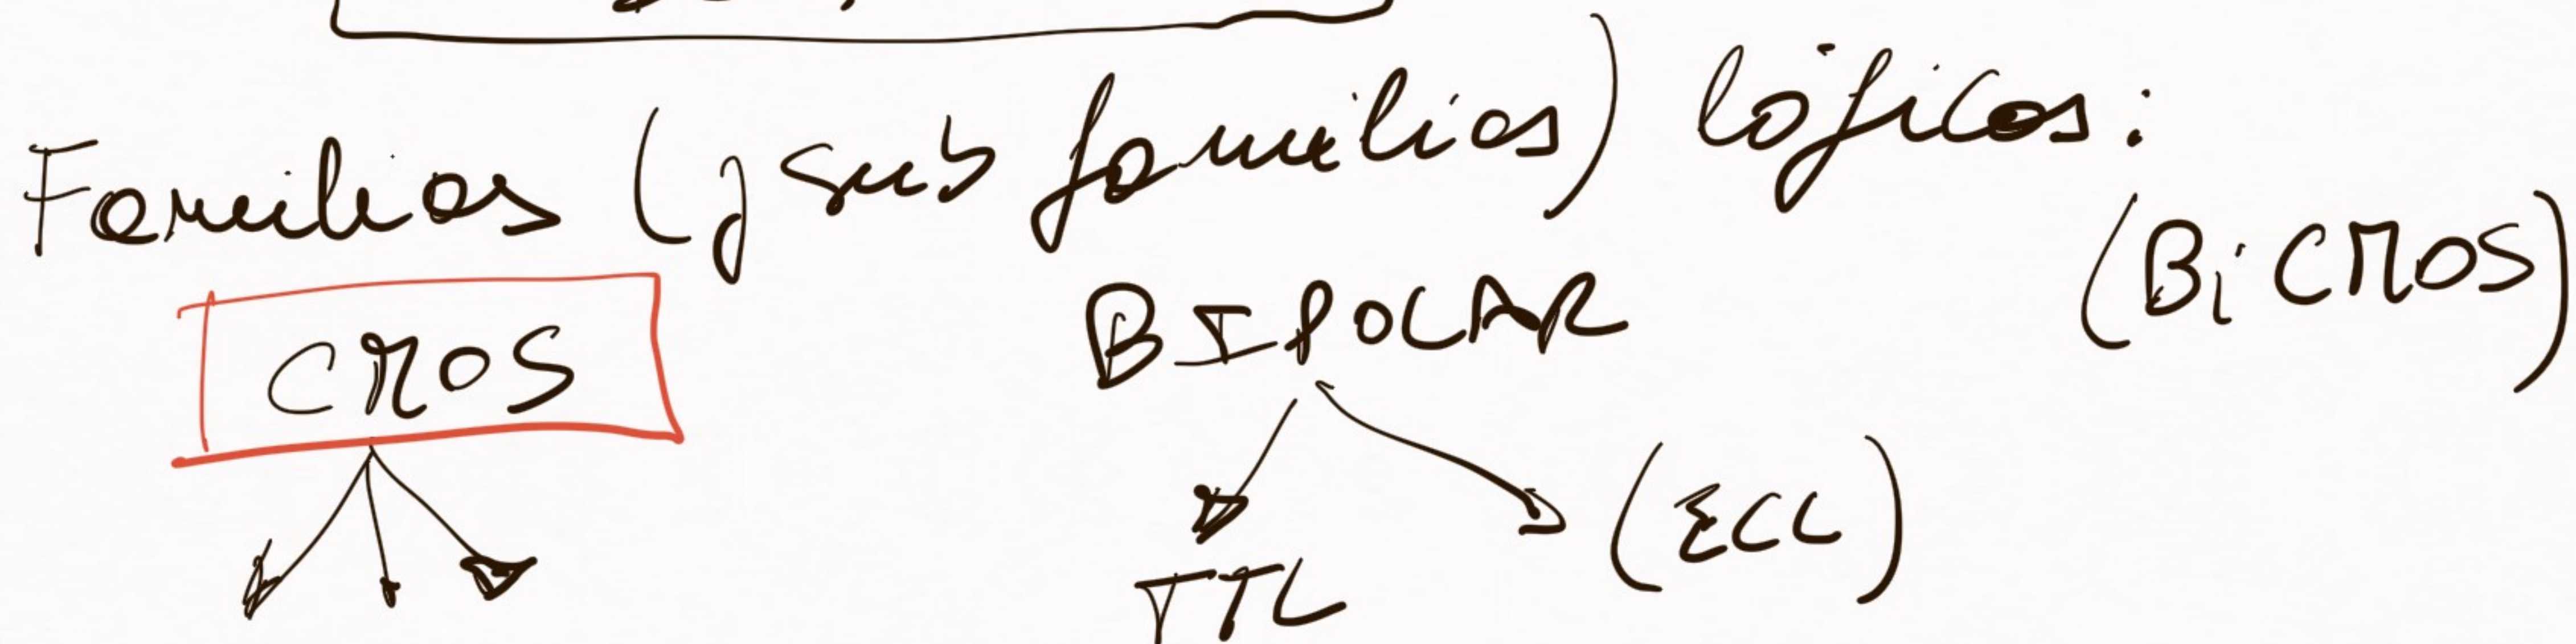 Familias (y subfamilias) lógicas:
CMOS BIPOLAR (BiCMOS)
TTL (ECL)